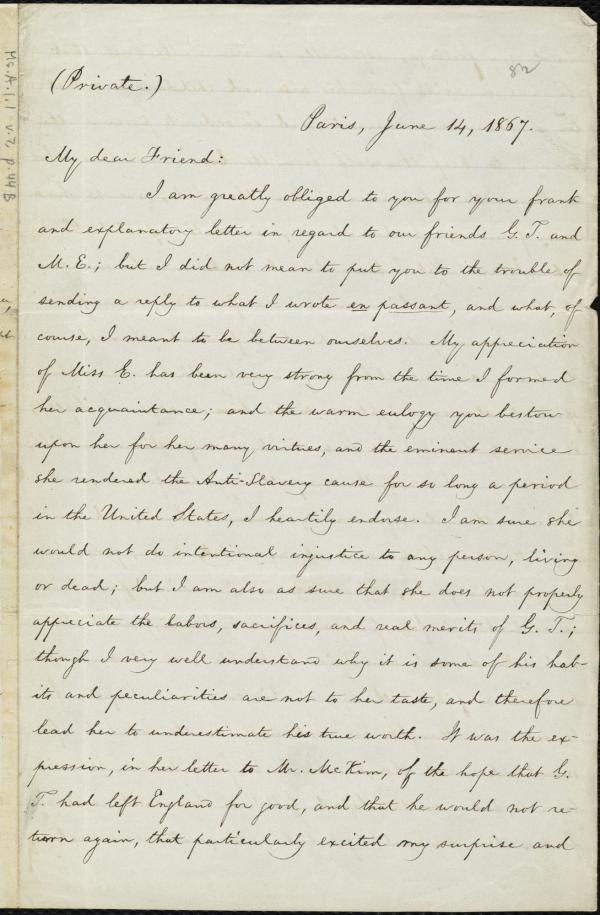 82
(Private.)
Paris, June 14, 1867.
My dear Friend:
I am greatly obliged to you for your frank
and explanatory letter in regard to our friends G. T. and
M. E.; but I did not mean to put you to the trouble of
sending a reply to what I wrote en passant, and what, of
course, I meant to be between ourselves. My appreciation
of Miss E. has been very strong from the time I formed
her acquaintance; and the warm eulogy you bestow
upon her for her many virtues, and the eminent service
she rendered the Anti-Slavery cause for so long a period
in the United States, I heartily endorse. I am sure she
would not do intentional injustice to any person, living
or dead; but I am also as sure that she does not properly
appreciate the labors, sacrifices, and real merits of G. T.;
though I very well understand why it is some of his hab-
its and peculiarities are not to her taste, and therefore
lead her to underestimate his true worth. It was the ex-
pression, in her letter to Mr. McKim, of the hope that G.
T. had left England for good, and that he would not re-
turn again, that particularly excited my surprise and
Ms.A.1.1 v.7, p.44B